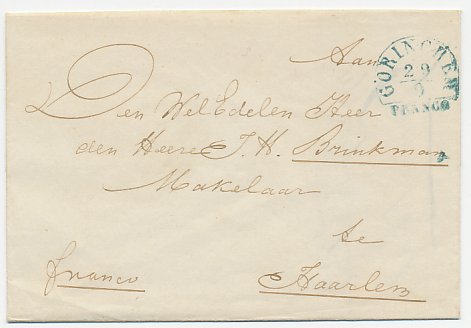 Aan
GORINCHEM
29
9
FRANCO
Den WelEdelen Heer
den Heere J. H. Brinkman
Makelaar
te
franco
Haarlem